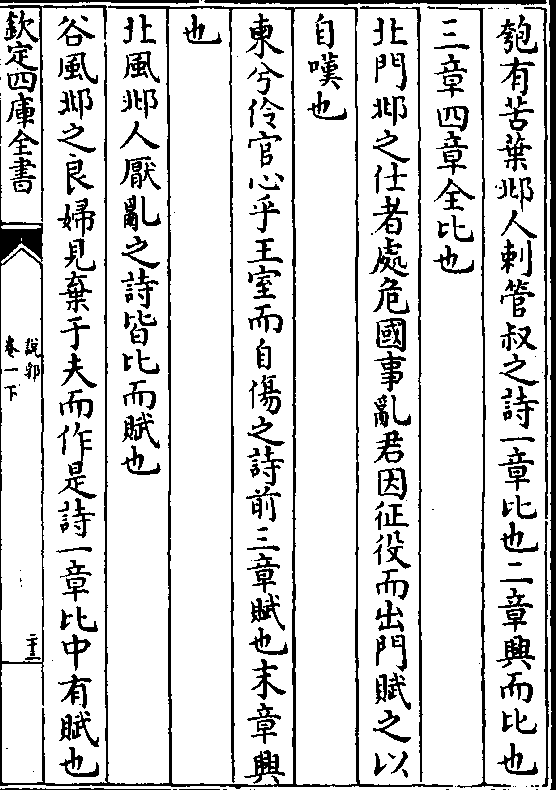 匏有苦葉邶人刺管叔之詩一章比也二章興而比也
三章四章全比也
北門邶之仕者處危國事亂君因征役而出門賦之以
自嘆也
東兮伶官心乎王室而自傷之詩前三章賦也末章興
也
北風邶人厭亂之詩皆比而賦也
谷風邶之良婦見棄于夫而作是詩一章比中有賦也
欽定四庫全書
說郛
卷一下
二十三